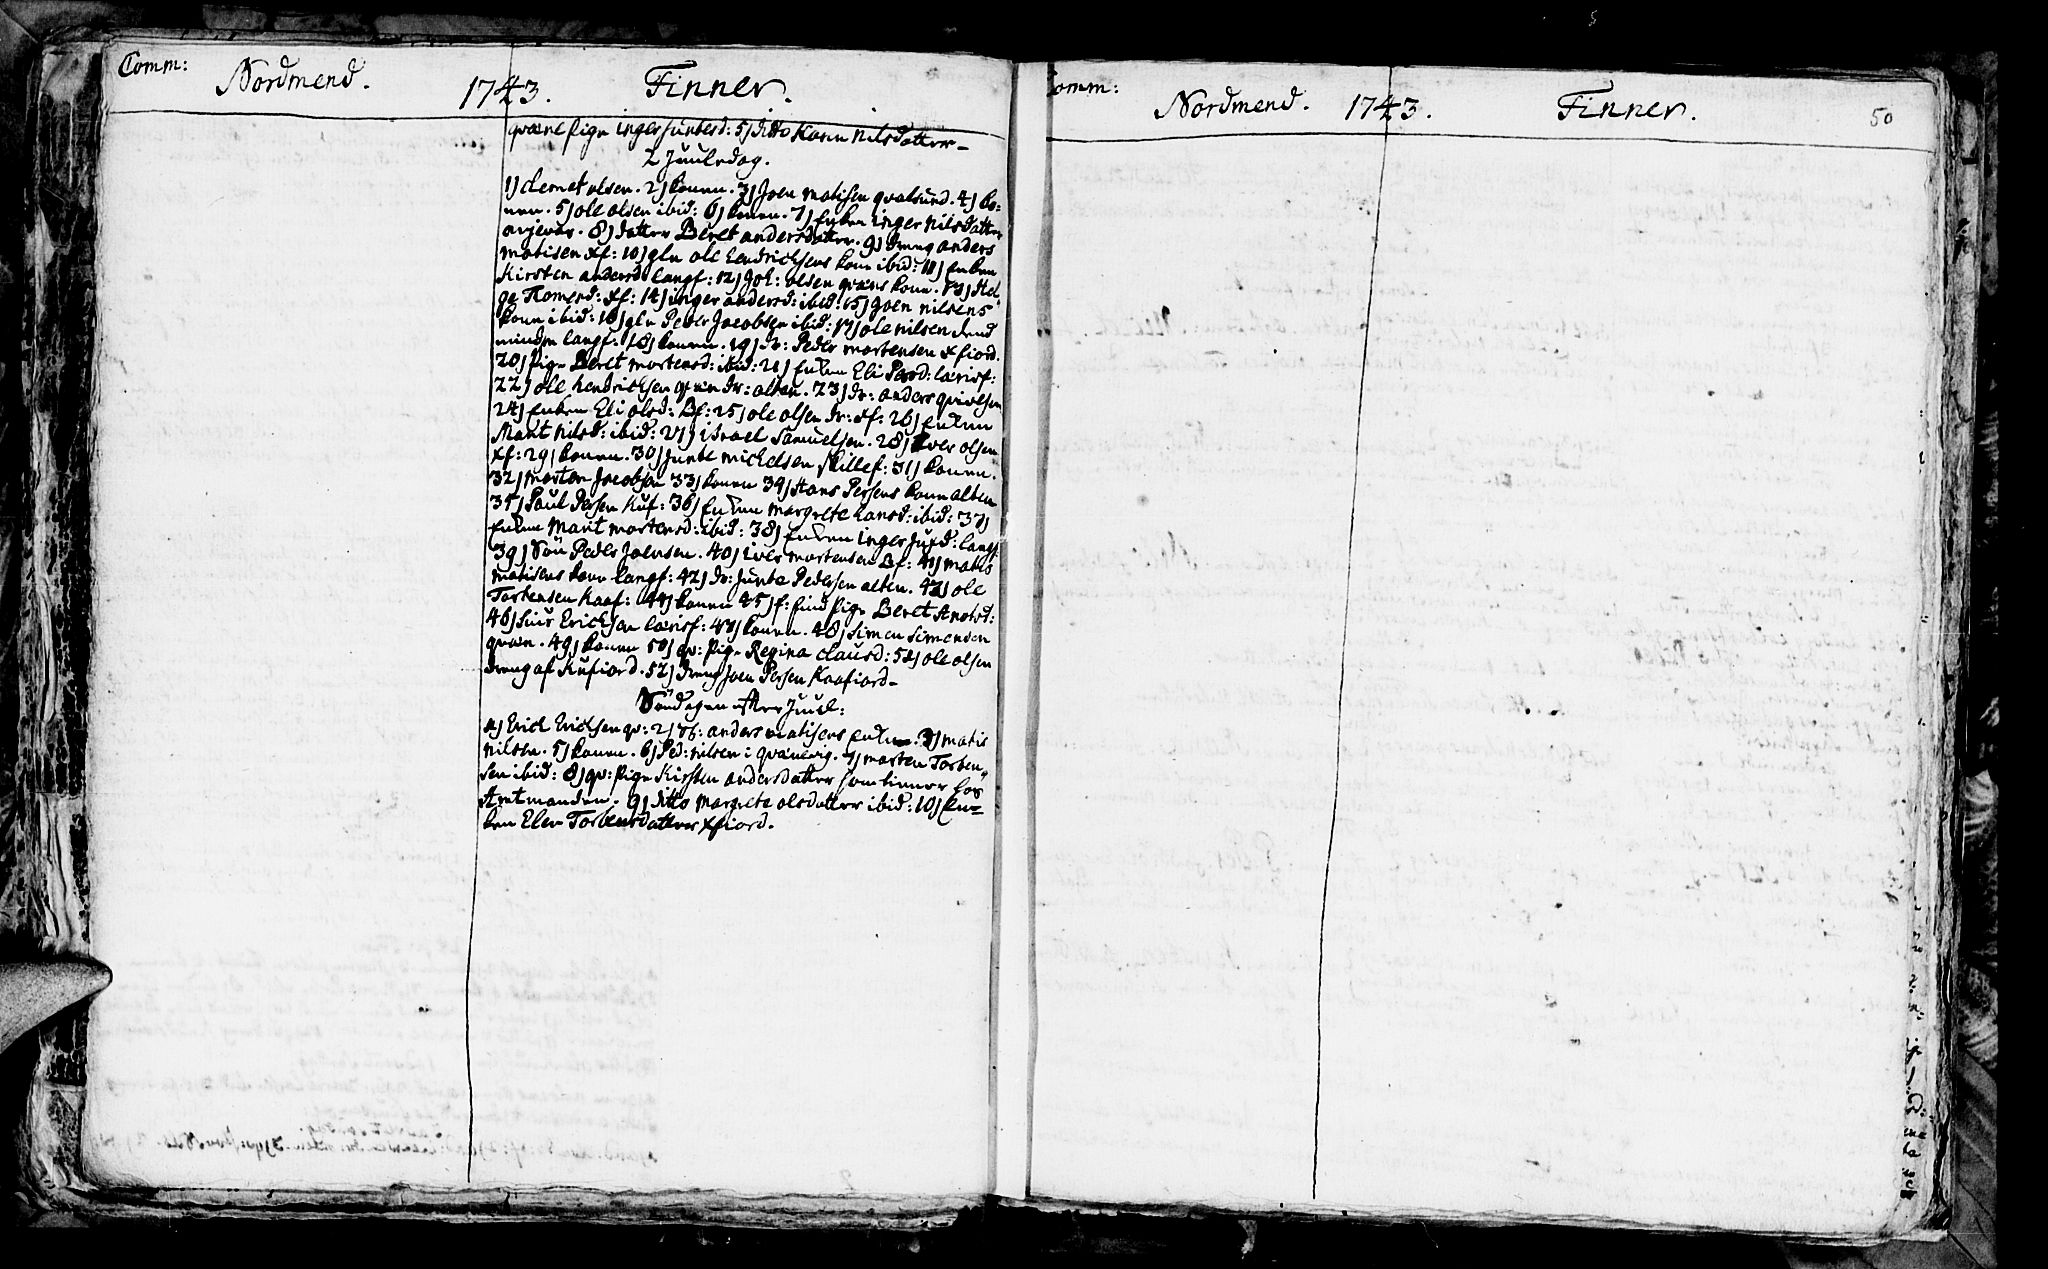 Comm:
Nordmend.
1743.
Finner.
qvæne Pige inger Juntesd: 5) ditto Karen Nilsdatter
2 Juuledag.
1) clemet olsen. 2) konen. 3) Joen Matisen qvalsund. 4) ko-
nen. 5) ole olsen ibid: 6) konen. 7) Enken inger Nilsdatter
8) datter Beret andersdatter. 9) dreng anders
Matisen xf: 10) gln ole Hendrichsens kone ibid: 11) Enken
Kirsten andersd: langf: 12) Joh: olsen qvæns kone. 13) Hel-
ge Tomesd: xf: 14) inger andersd: ibid: 15) Joen Nilsens
kone ibid: 16) gln Peder Jacobsen ibid: 17) ole Nilsen dend
mindre langf. 18) konen. 19) dr: Peder Mortensen xfiord.
20) Pige Beret Mortensd: ibid: 21) Enken Eli Persd: lærisf:
22) ole Hendrichsen qvæn dr: alten. 23) dr: anders qvivelsen
24) Enken Eli olsd: Bf: 25) ole olsen dr: xf: 26) Enken
Marit Nilsd: ibid: 27) israel Samuelsen. 28) iver olsen
xf: 29) konen. 30) Junte Michelsen skillef: 31) konen.
32) Morten Jacobsen 33) konen 34) Hans Persens kone alten
35) Paul Persen Kuf: 36) Enken Margrete Hansd: ibid: 37)
Enken Marit Mortensd: ibid: 38) Enken inger Juxd: langf.
39) Sön Peder Joensen. 40) iver Mortensen Bf: 41) Matis
Matisens kone langf: 42) dr: Junte Pedersen alten. 43) ole
Torbensen Kaaf: 44) konen 45) f: find Pige Beret
46) Siur Erichsen lærisf: 47) konen. 48) Simen Simensen
qvæn. 49) konen 50) qv: Pige Regina clausd: 51) ole olsen
dreng af Kufiord. 52) dreng Joen Persen Kaafiord
Söndagen efter Juul:
1) Erich Erichsen qv: 2) anders Matisens Enke. 3) Matis
Nilsen. 5) konen. 6) Ped: Nilsen i qvænvig. 7) Morten Torben-
sen ibid: 8) qv: Pige Kirsten andersdatter som tiener hos
Amtmanden. 9) ditto Margrete olsdatter ibid: 10) En-
ken Elen Torbensdatter xfiord.
omm:
Nordmend.
1743.
Finner.
50